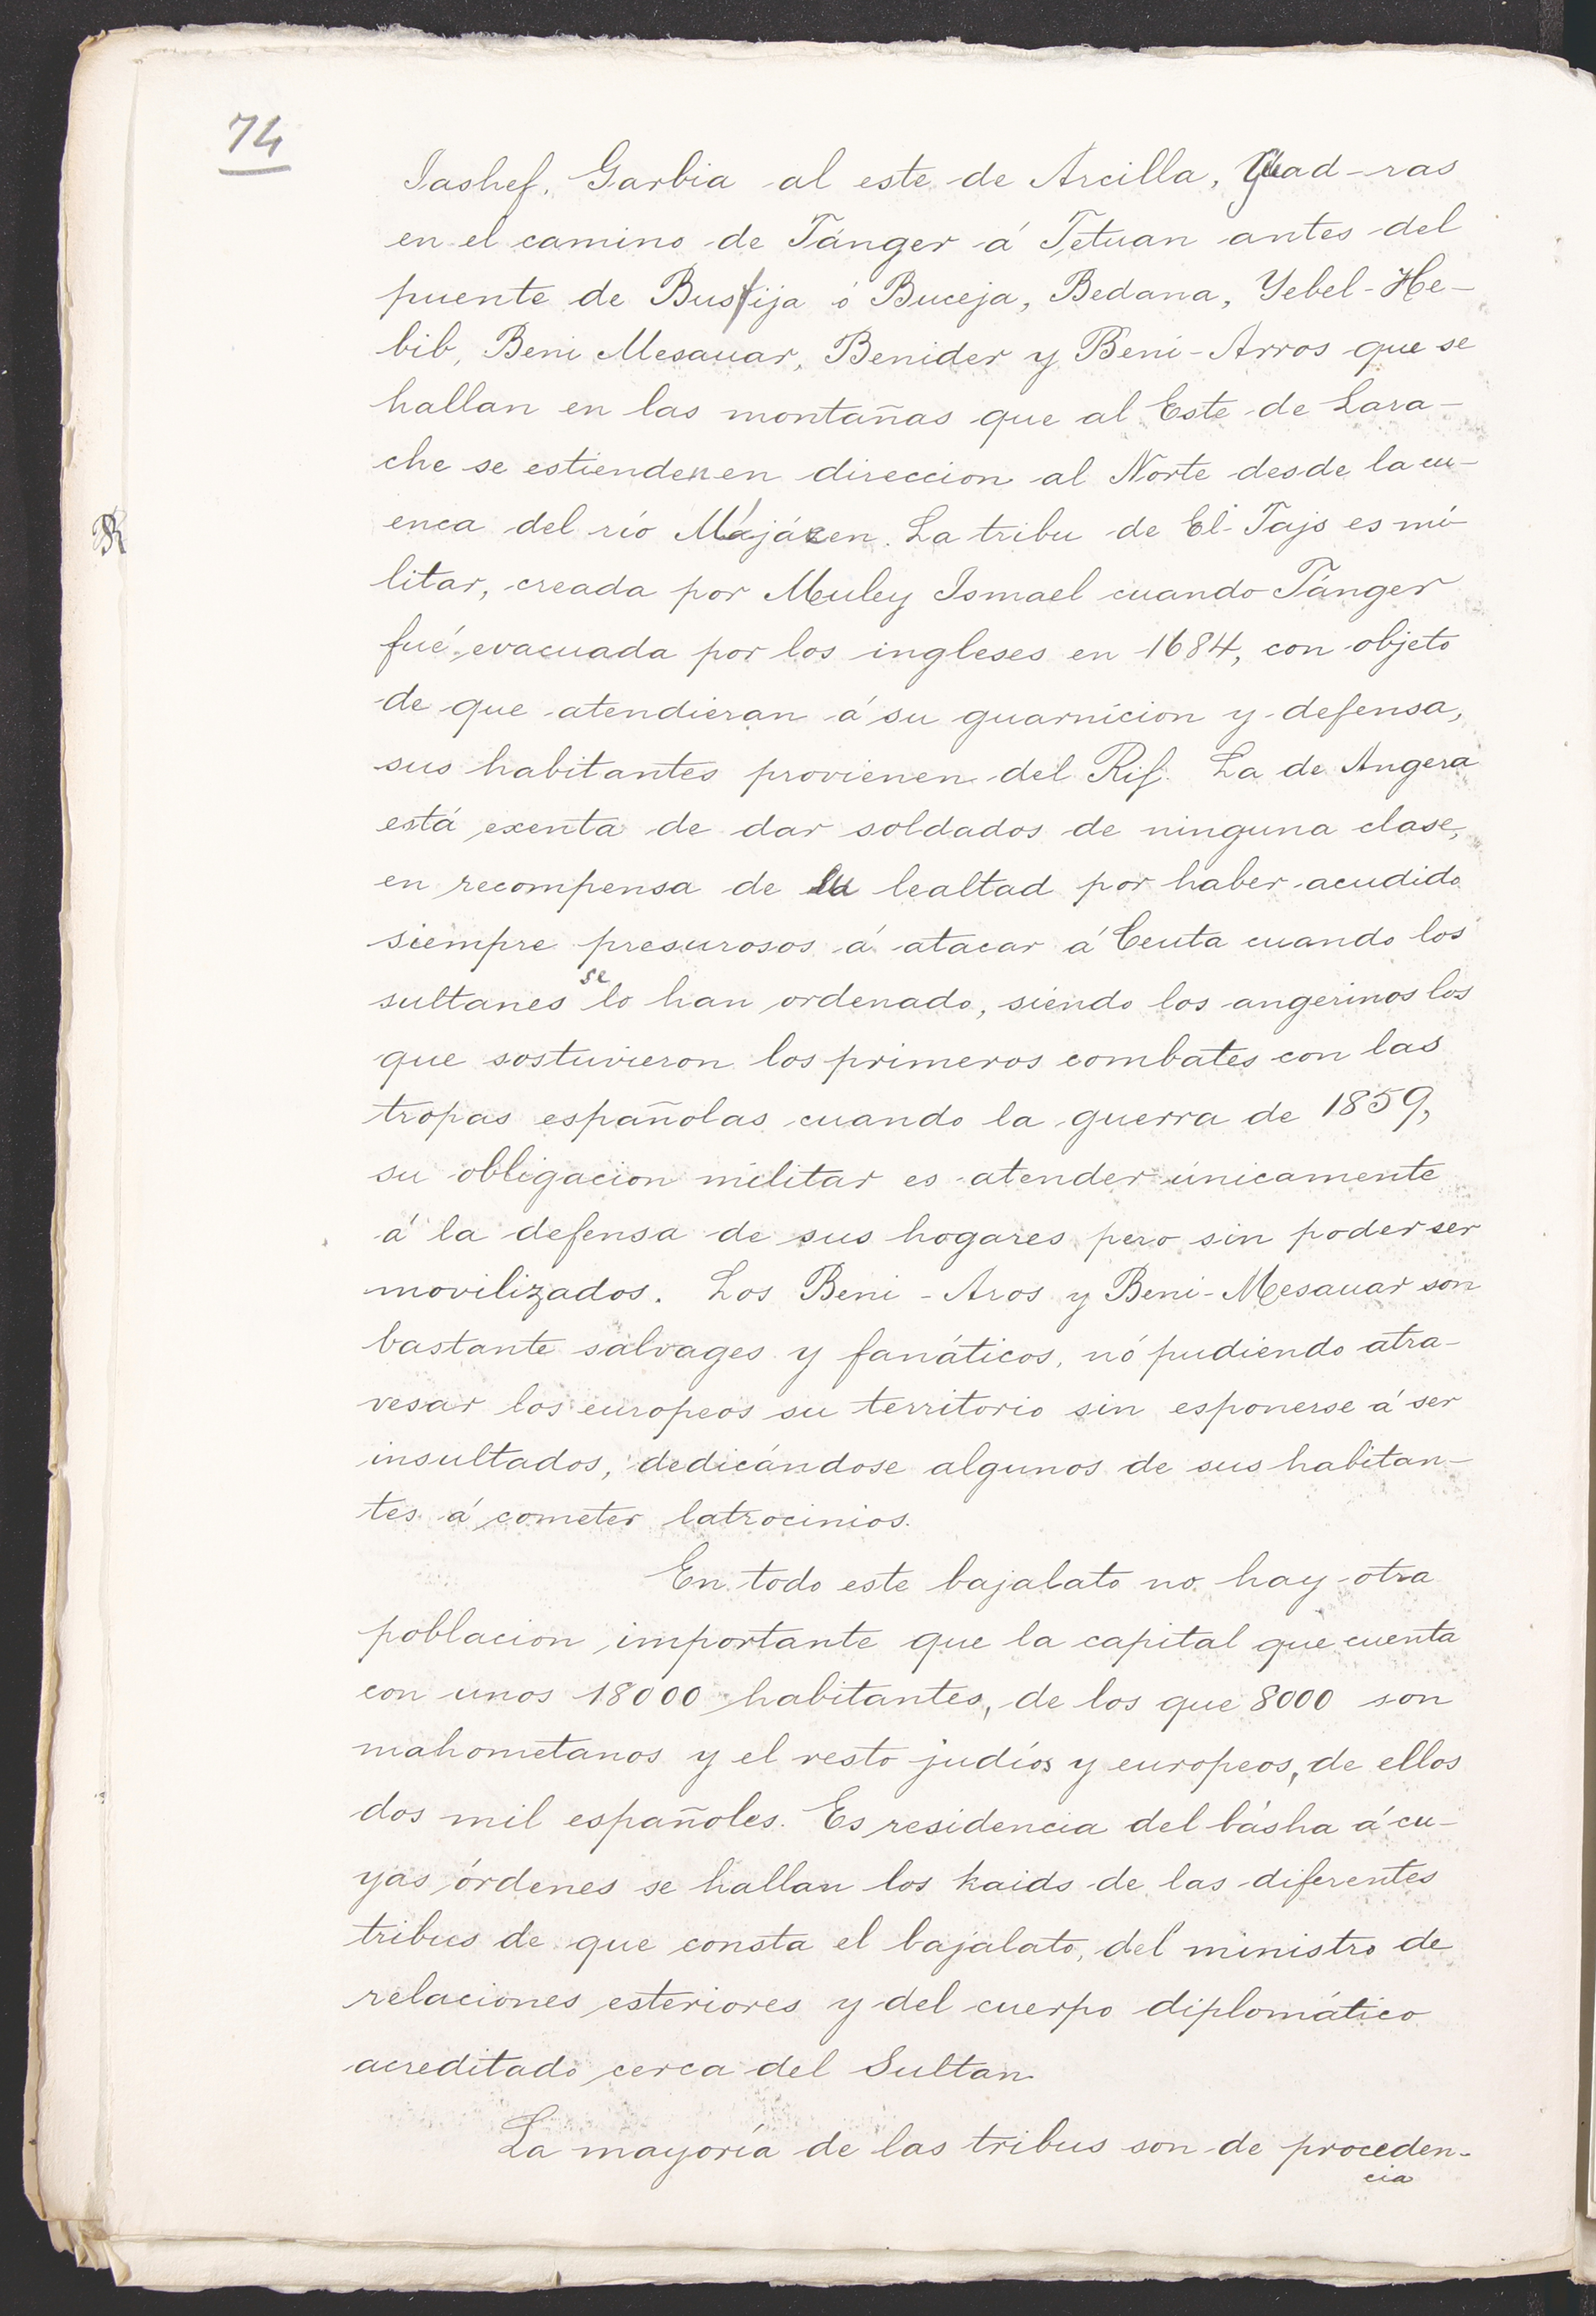 74
Iashef, Garbia al este de Arcilla, Guad-ras
en el camino de Tánger á Tetuan antes del
puente de Busfija ó Buceja, Bedana, Yebel-He-
bib, Beni Mesauar, Benider y Beni-Arros que se
hallan en las montañas que al Este de Lara-
che se estienden en direccion al Norte desde la cu-
enca del río Májázen. La tribu de El-Tajs es mi-
litar, creada por Muley Ismael cuando Tánger
fué evacuada por los ingleses en 1684, con objeto
de que atendieran á su guarnicion y defensa,
sus habitantes provienen del Rif. La de Angera
está exenta de dar soldados de ninguna clase,
en recompensa de su lealtad por haber acudido
siempre presurosos á atacar á Ceuta cuando los
sultanes se lo han ordenado, siendo los angerinos los
que sostuvieron los primeros combates con las
tropas españolas cuando la guerra de 1859,
su obligacion militar es atender únicamente
á la defensa de sus hogares pero sin poder ser
movilizados. Los Beni-Aros y Beni-Mesauar son
bastante salvages y fanáticos, nó pudiendo atra-
vesar los europeos su territorio sin esponerse á ser
insultados, dedicándose algunos de sus habitan-
tes á cometer latrocinios.
En todo este bajalato no hay otra
poblacion importante que la capital que cuenta
con unos 18000 habitantes, de los que 8000 son
mahometanos y el resto judíos y europeos, de ellos
dos mil españoles. Es residencia del básha á cu-
yas órdenes se hallan los kaids de las diferentes
tribus de que consta el bajalato, del ministro de
relaciones esteriores y del cuerpo diplomático
acreditado cerca del Sultan.
La mayoría de las tribus son de proceden-
cia